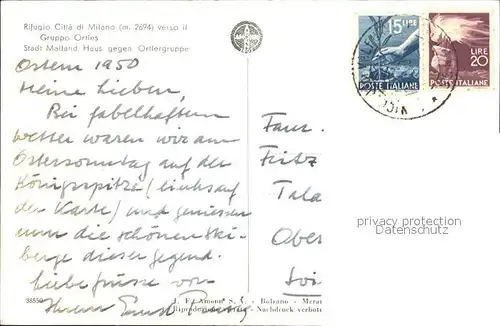 Rifugio Città di Milano (m. 2694) verso il
Gruppo Ortles
Stadt Mailand Haus gegen Ortlergruppe
Ostern 1950
Meine Lieben,
Bei fabelhaftem
Wetter waren wir am
Ostersonntag auf der
Königsspitze (links auf
der Karte) und geniessen
nun die schönen Ski-
berge dieser Gegend.
Liebe Grüsse von
Ihrem Ernst
15 LIRE
POSTE ITALIANE
LIRE
20
POSTE ITALIANE
Fam.
Fritz
Tala
Ober
privacy protection
Datenschutz
38550
L. F. Amonn S. A. - Bolzano - Meran
Nachdruck verbot